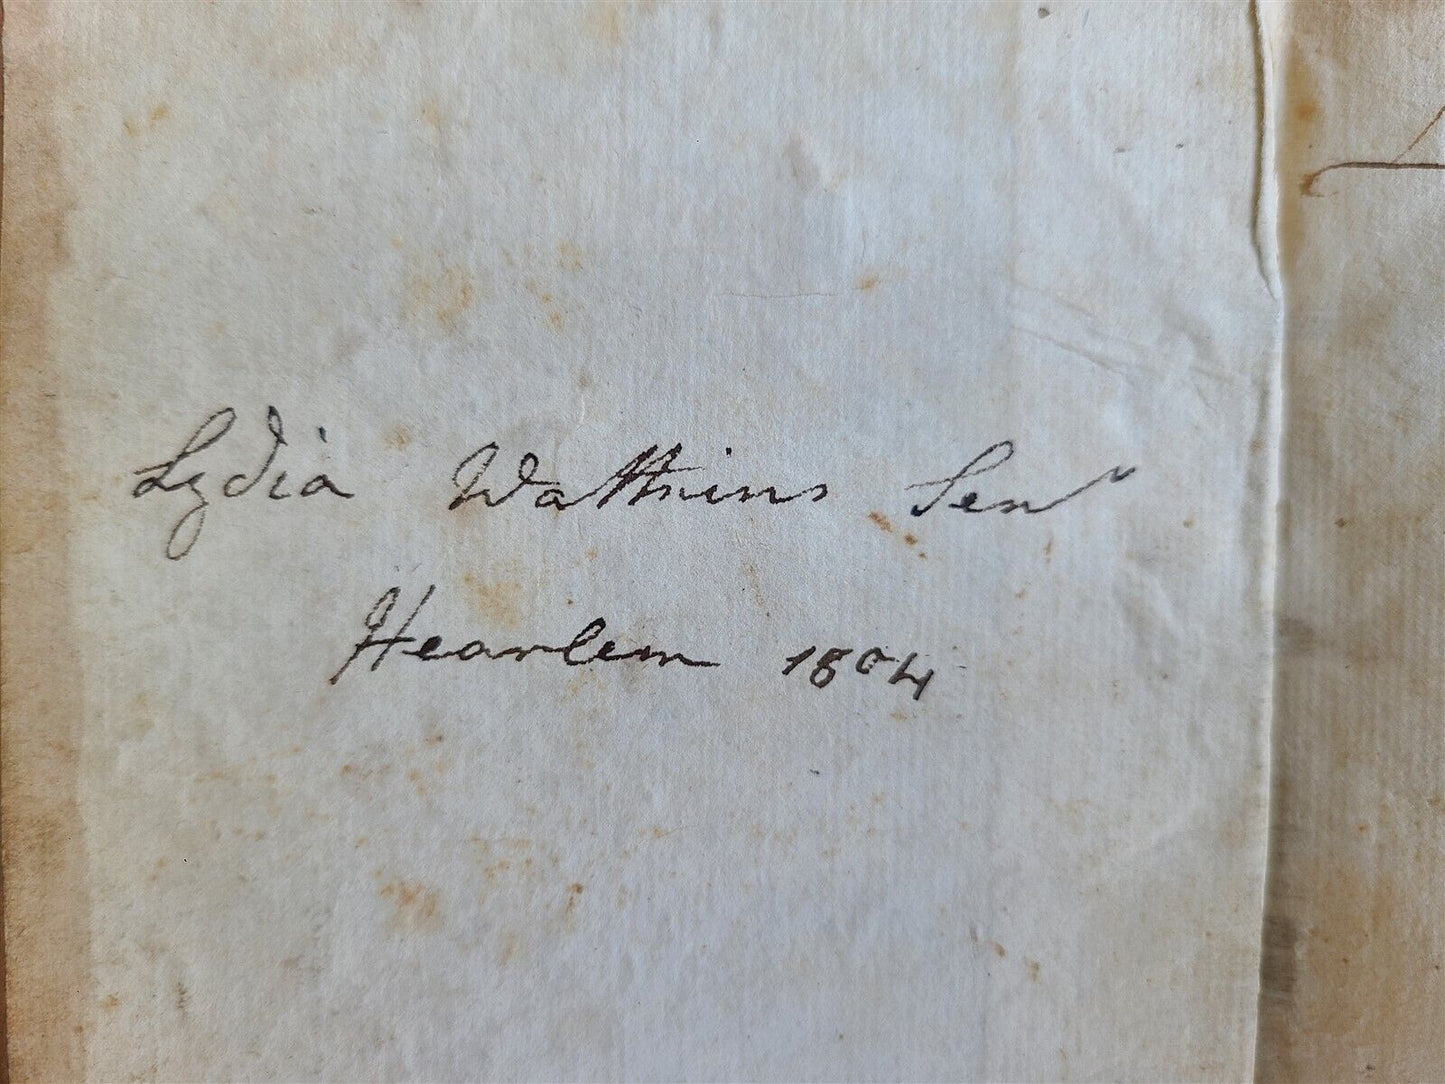 Lydia Watkins Senr
Hearlem 1804